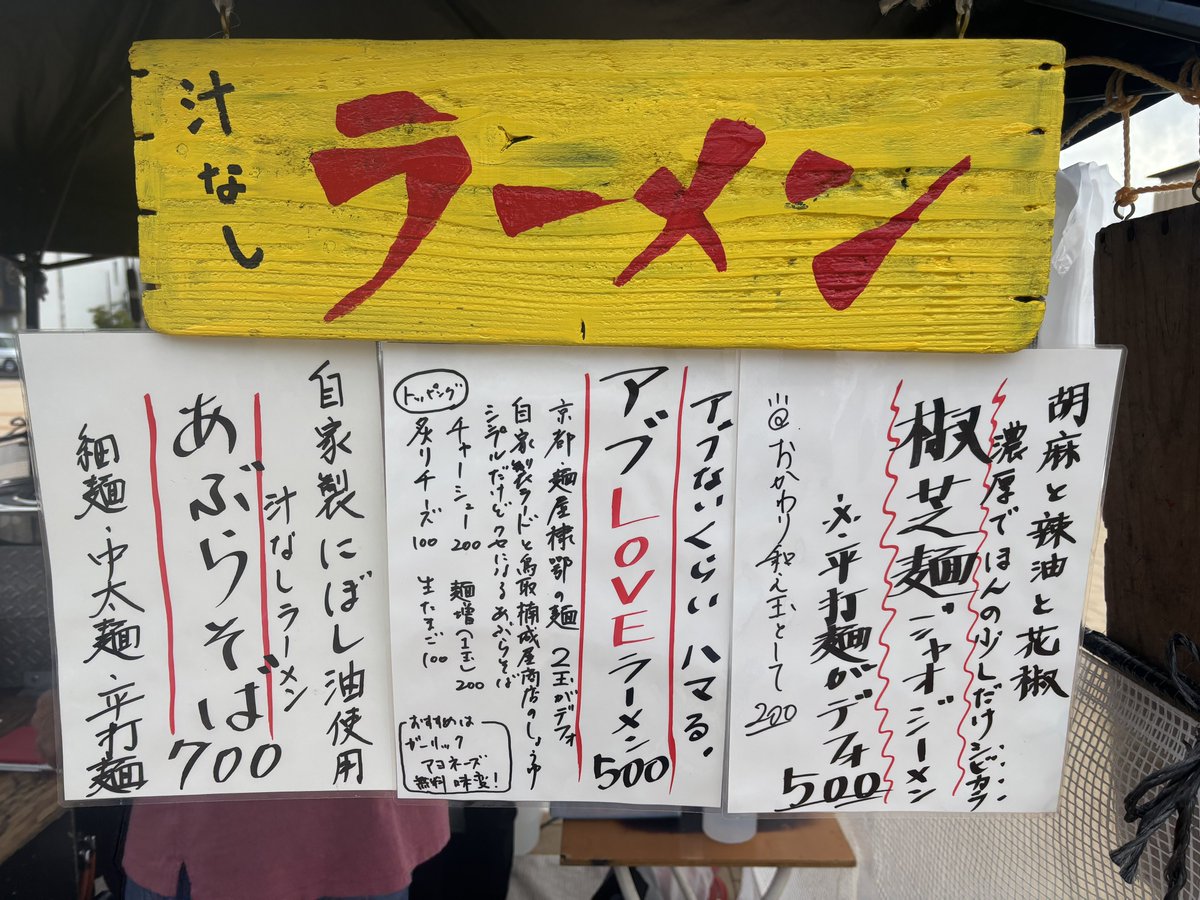 汁なし
ラーメン
胡麻と辣油と花椒
濃厚でほんの少しだけシビカラ
椒芝麺 ジャオジーメン
※平打麺がデフォ
500
おかわり和え玉として
200
アブないくらいハマる。
アブLOVEラーメン
500
京都・麺屋棣鄂の麺 2玉がデフォ
自家製ラードと鳥取楠城屋商店のしょうゆ
シンプルだけどクセになるあぶらそば
トッピング
チャーシュー 200
麺増(1玉) 200
炙りチーズ 100
生たまご 100
おすすめは
ガーリック
マヨネーズ
無料 味変!
自家製にぼし油使用
汁なしラーメン
あぶらそば
700
細麺・中太麺・平打麺